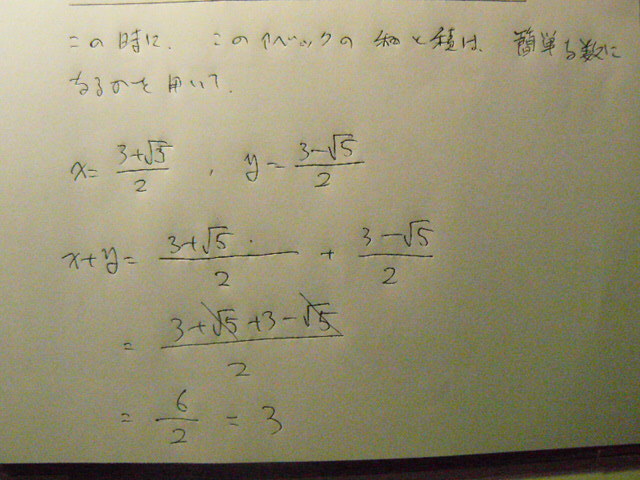 この時に、このイベックの 和と積は、簡単な数に
なるのを用いて、
x= 3+√5/2 , y= 3-√5/2
x+y= 3+√5/2 + 3-√5/2
= 3+√5+3-√5/2
= 6/2 = 3